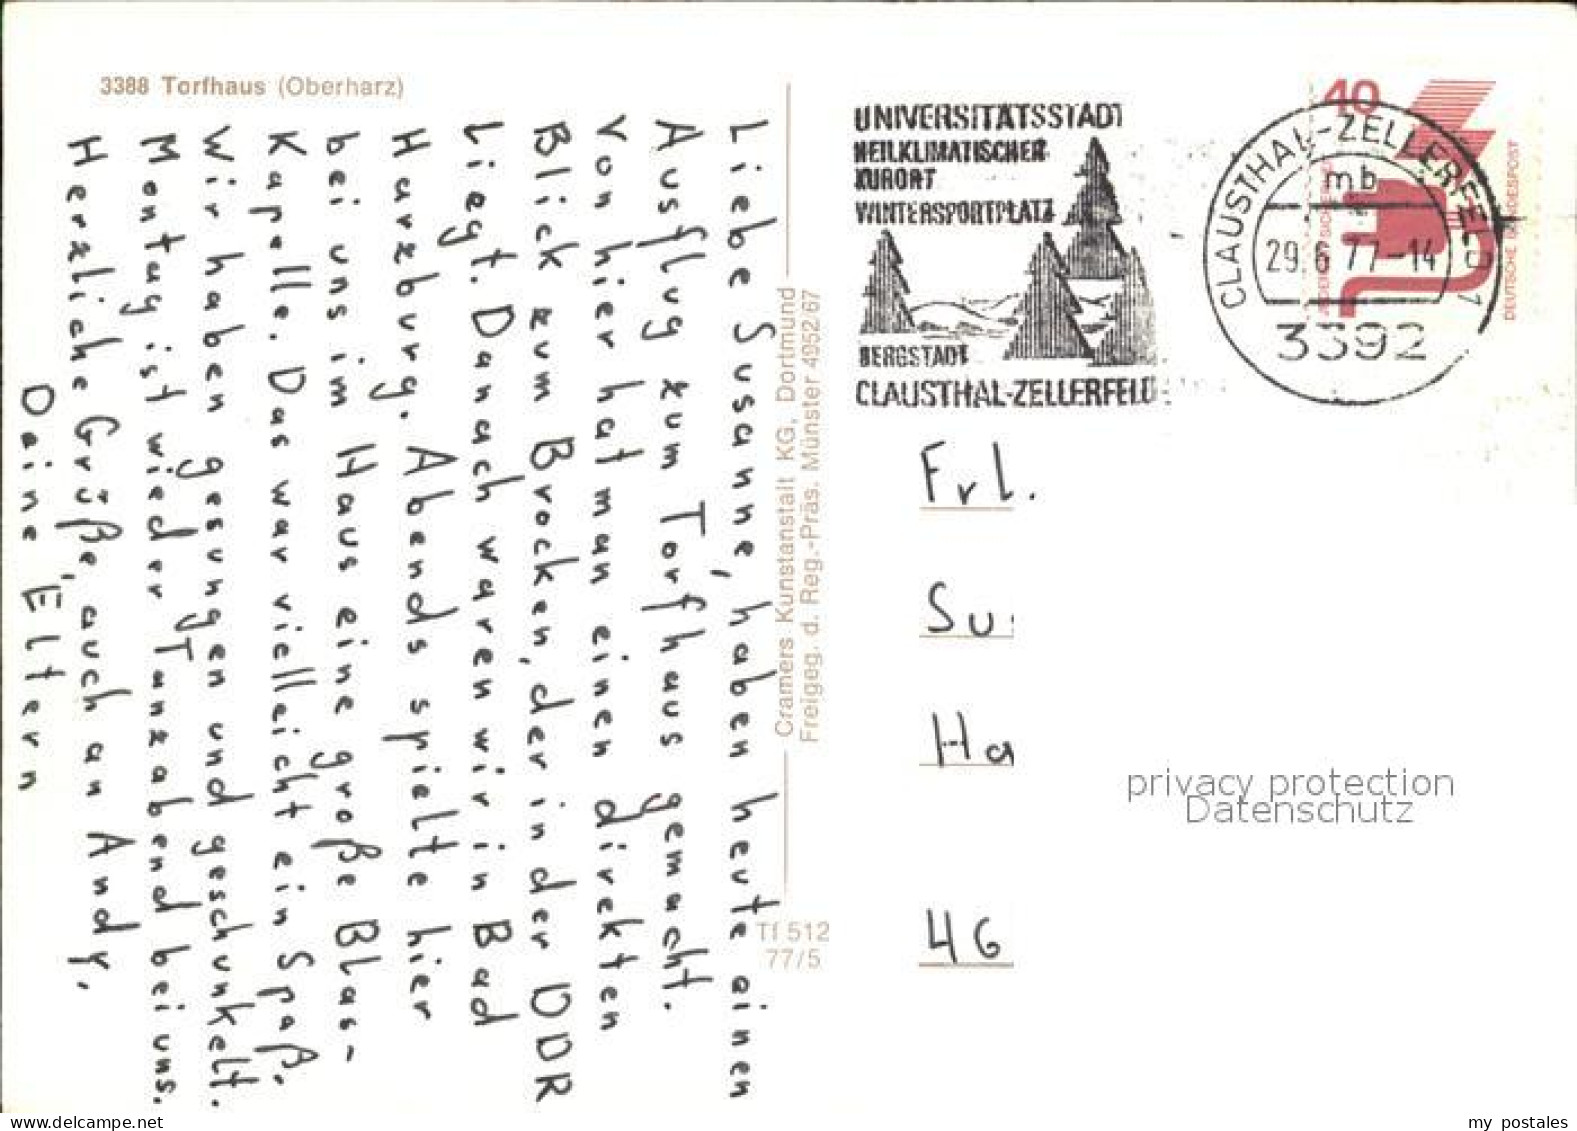 3388 Torfhaus (Oberharz)
Liebe Susanne, haben heute einen
Ausflug zum Torfhaus gemacht.
Von hier hat man einen direkten
Blick zum Brocken, der in der DDR
liegt. Danach waren wir in Bad
Harzburg. Abends spielte hier
bei uns im Haus eine große Blas-
Kapelle. Das war vielleicht ein Spaß.
Wir haben gesungen und geschunkelt.
Montag ist wieder Tanzabend bei uns.
Herzliche Grüße, auch an Andy,
Deine Eltern
Cramers Kunstanstalt KG, Dortmund
Freigeg. d. Reg.-Präs. Münster 4952/67
Tf 512
77/5
UNIVERSITÄTSSTADT
HEILKLIMATISCHER
KURORT
WINTERSPORTPLATZ
BERGSTADT
CLAUSTHAL-ZELLERFELD
CLAUSTHAL-ZELLERFELD 1
mb
29.6.77-14
3392
40
DEUTSCHE BUNDESPOST
Frl.
Su
Ha
46
privacy protection
Datenschutz
my postales